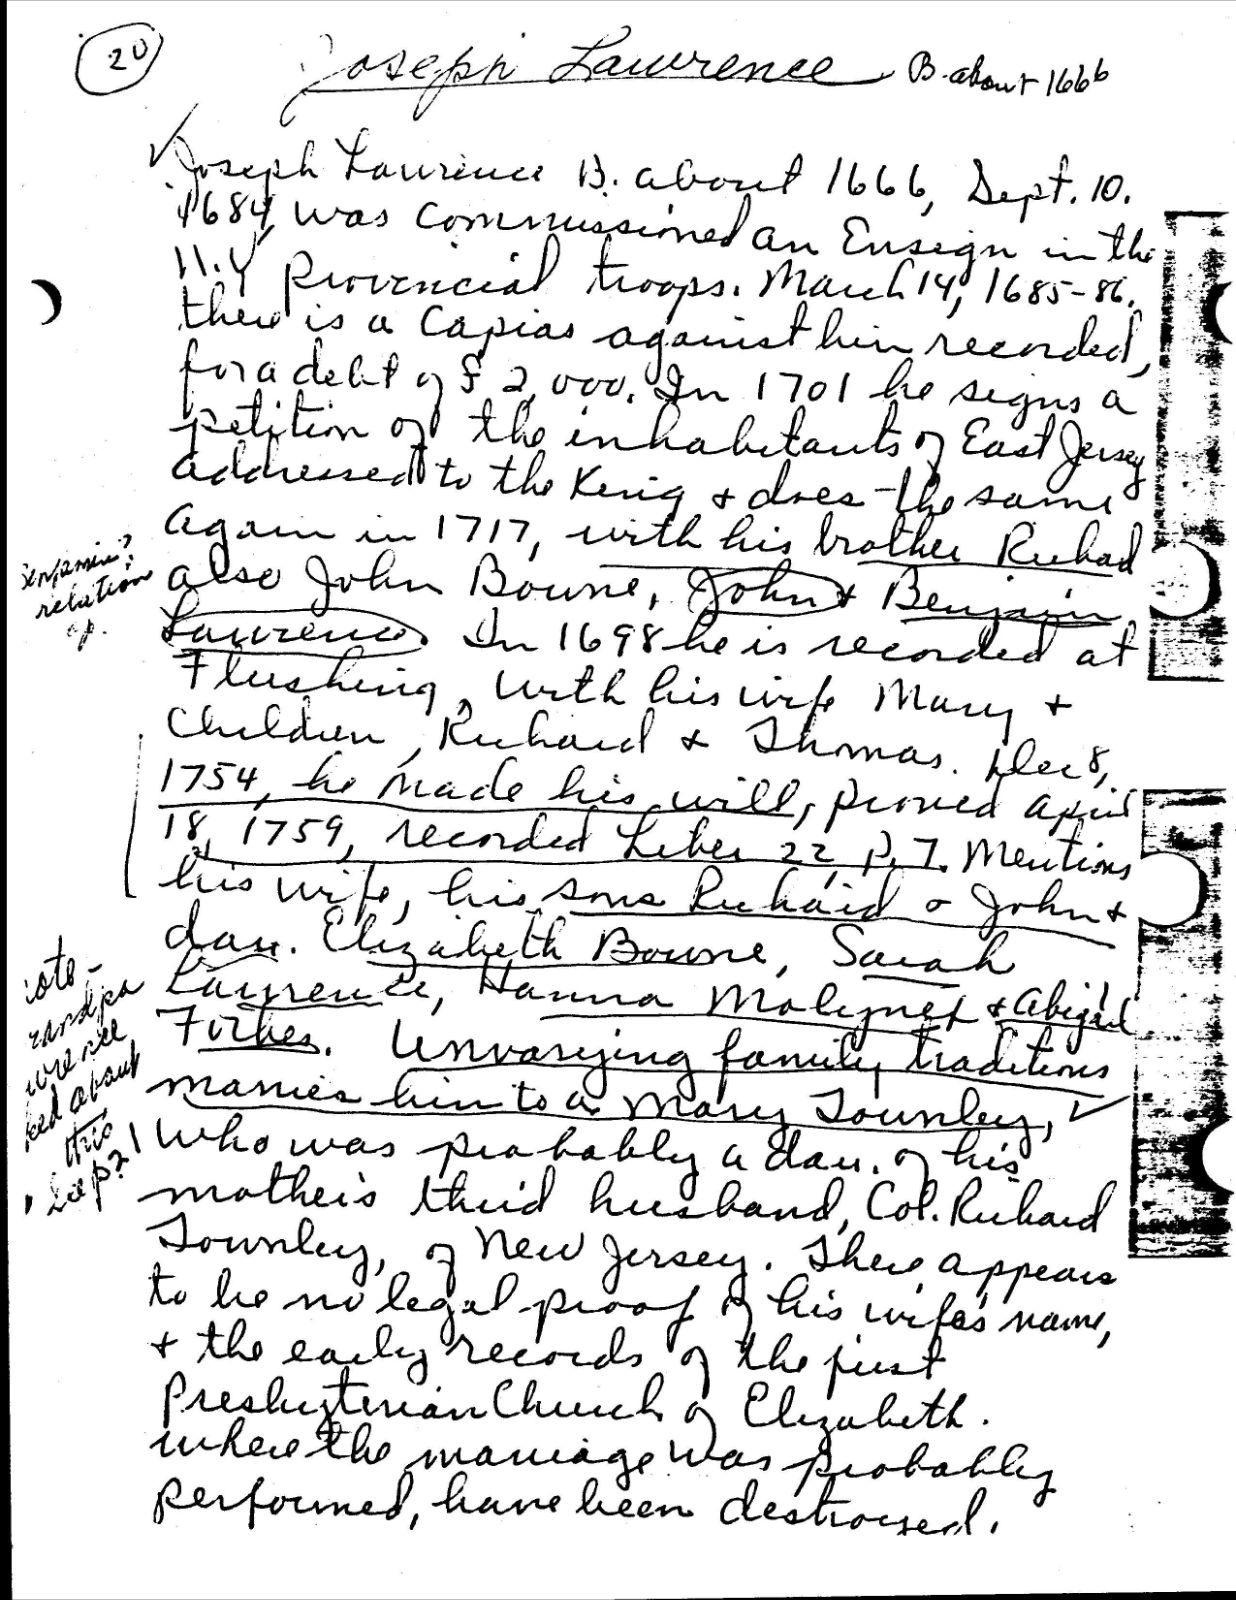 20
Joseph Lawrence B. about 1666
Joseph Lawrence B. about 1666, Sept. 10.
1684, was commissioned an Ensign in the
N.Y Provincial troops. March 14, 1685-86.
there is a Capias against him recorded,
for a debt of £ 2,000. In 1701 he signs a
petition of the inhabitants of East Jersey
addressed to the King + does the same
again in 1717, with his brother Richard
also John Bowne, John + Benjamin
Lawrence. In 1698 he is recorded at
Flushing, with his wife Mary +
Children, Richard + Thomas. Dec 8,
1754, he made his will, proved April
18, 1759, recorded Liber 22, p. 7. Mentions
his wife, his sons Richard & John +
dau. Elizabeth Bowne, Sarah
Lawrence, Hanna Molynex + Abigail
Forbes. Unvarying family traditions
marries him to a Mary Townley,
who was probably a dau. of his
mother's third husband, Col. Richard
Townley, of New Jersey. There appears
to be no legal proof of his wife's name,
+ the early records of the first
Presbyterian Church of Elizabeth.
where the marriage was probably
performed, have been destroyed.
Benjamin?
relation
op.
iote -
randpa
wrence
ked about
this
see p. 21